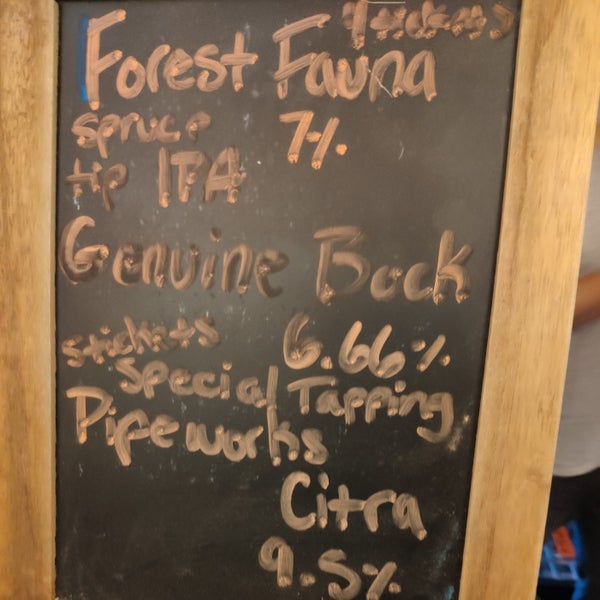 4tickets
Forest Fauna
spruce 7%
tip IPA
Genuine Bock
5tickets 6.66%
Special Tapping
Pipeworks
Citra
9.5%